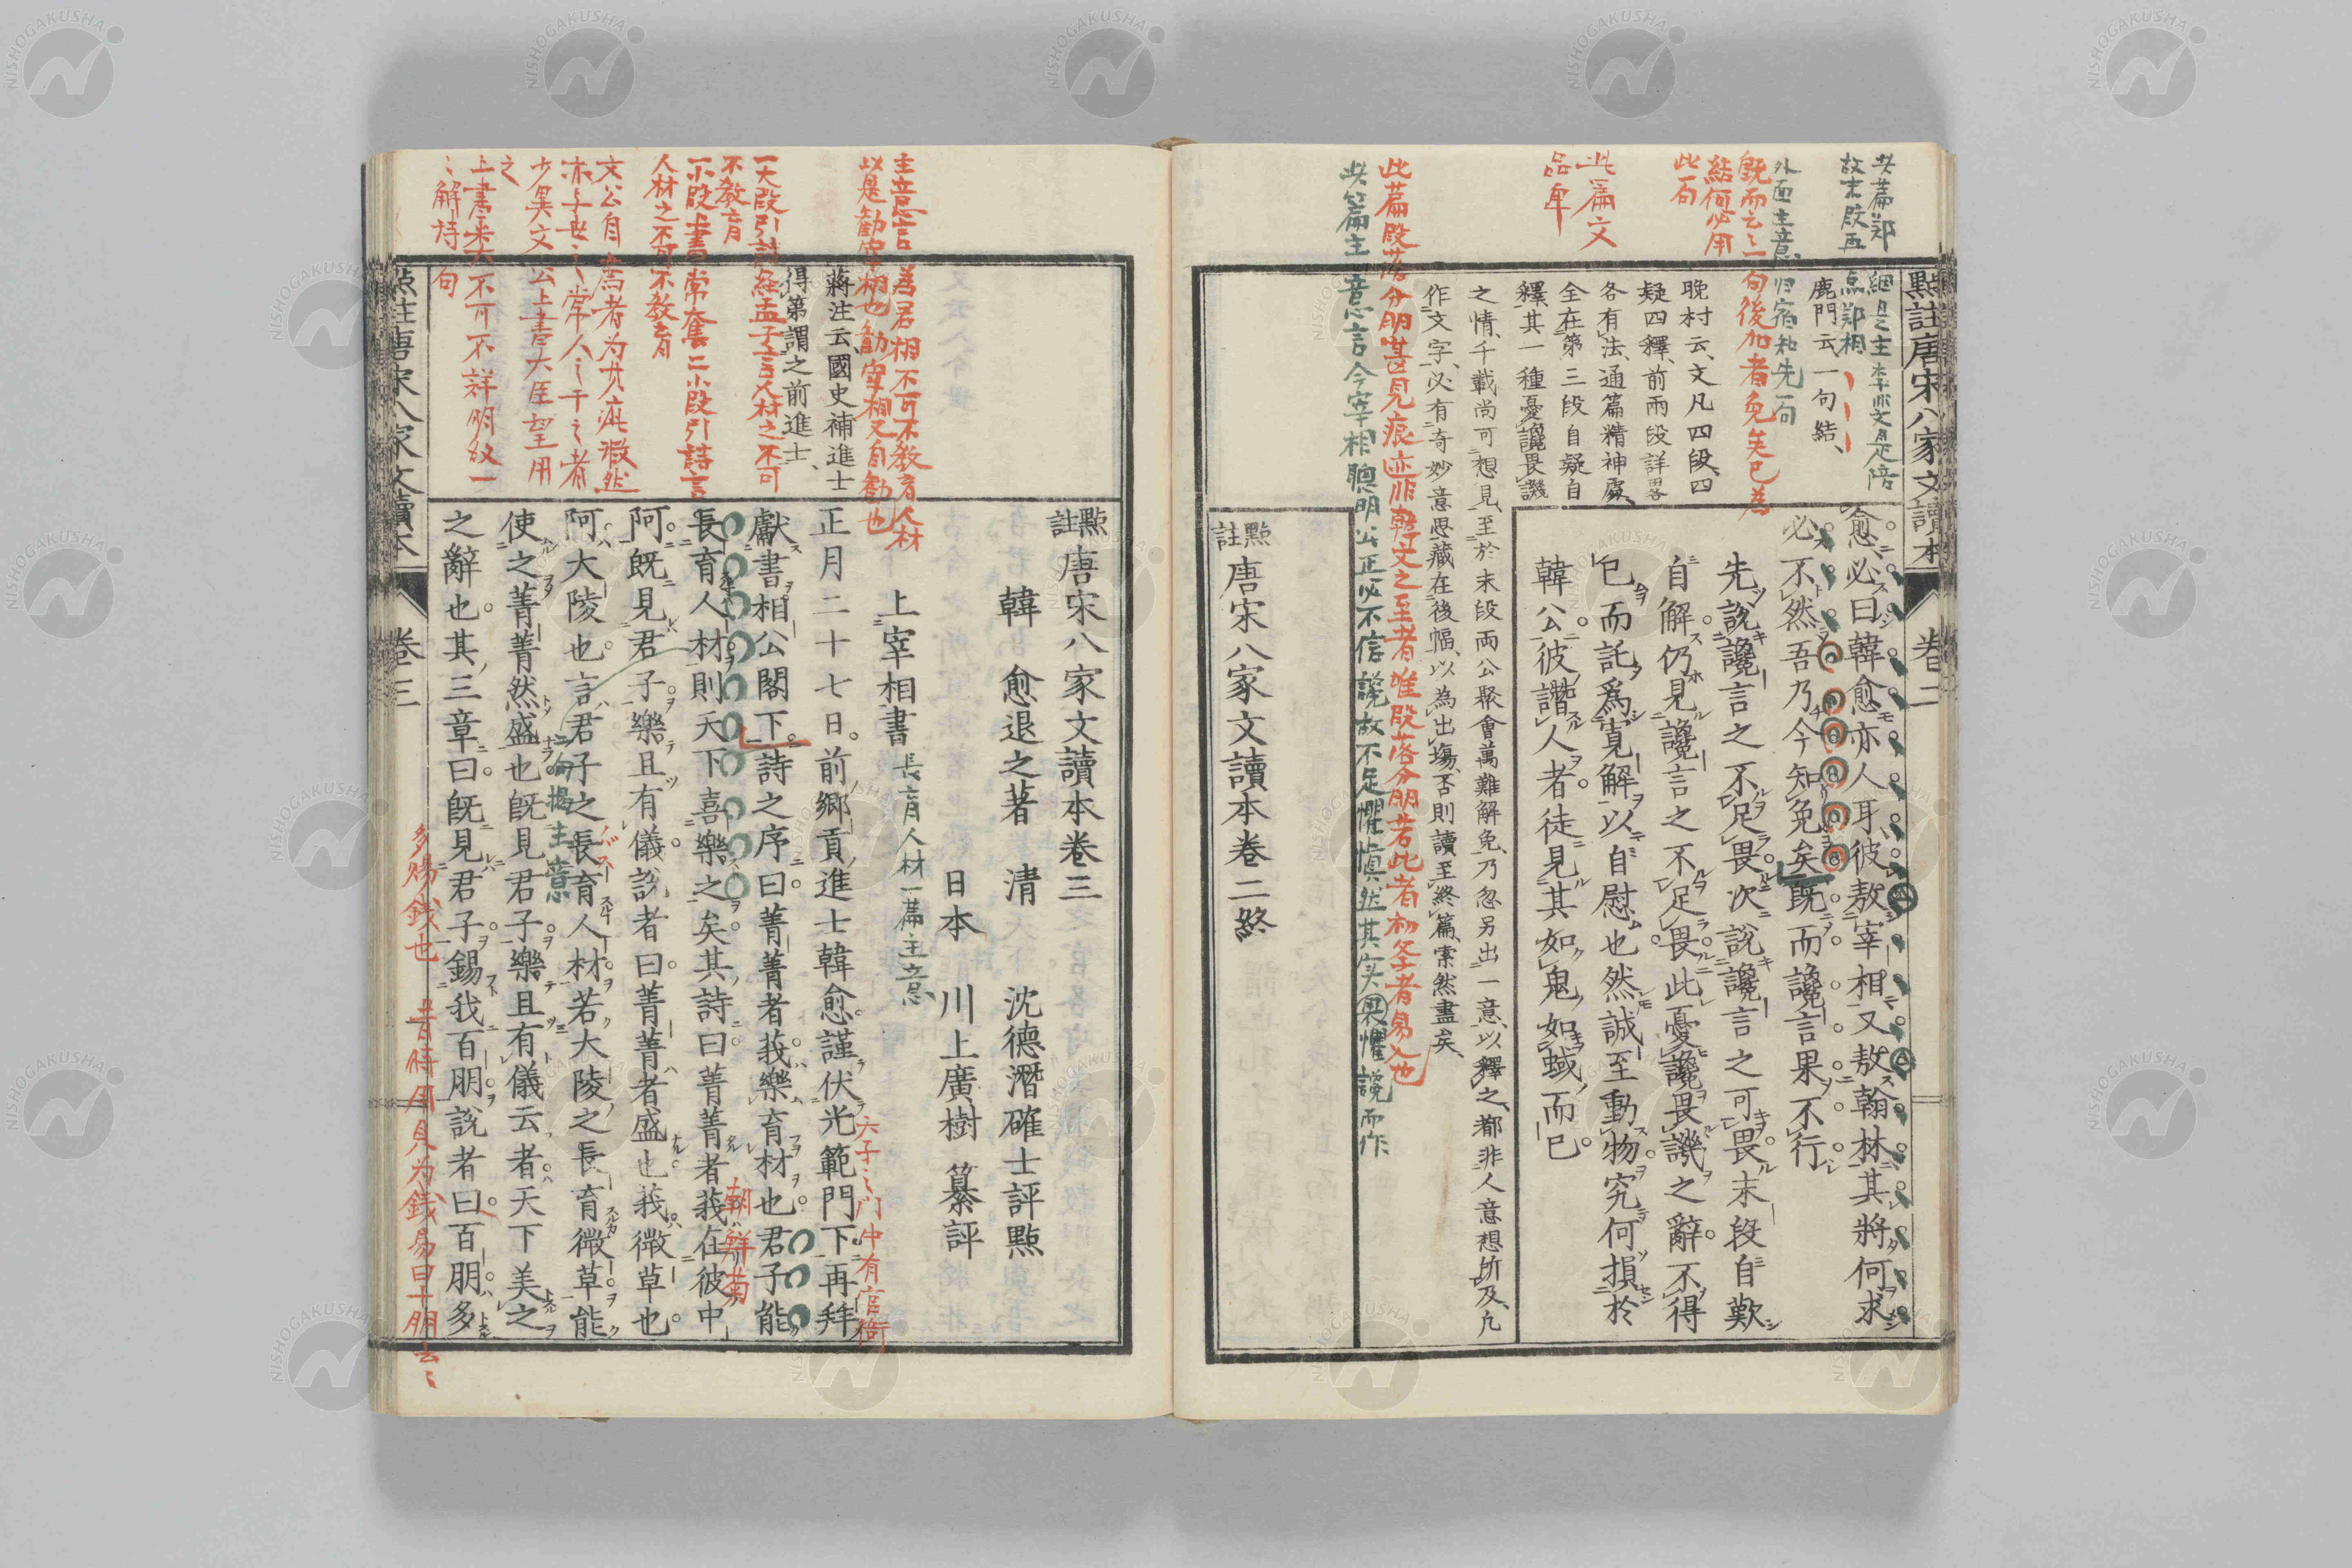 點註唐宋八家文讀本
卷二
此篇鄭
故末段再
細是主李翺是陪
点鄭相
外面主意归宿和先一句
既而云々一句後加者免矣已為
結何必用
此一句
此篇文
品卑
鹿門云、一句結、
晚村云、文凡四段、四
疑四釋、前兩段詳畧
各有法、通篇精神處、
全在第三段自疑自
釋、其一種憂讒畏譏
之情、千載尚可想見、至於末段兩公聚會萬難解免、乃忽另出一意、以釋之、都非人意想所及、凢
作文字、必有奇妙意思藏在後幅、以為出塲、否則讀至終篇、索然盡矣、
愈、必曰韓愈亦人耳、彼敖宰相、又敖翰林、其將何求、
必不然、吾乃今知免矣、既而讒言果不行、
先說讒言之不足畏、次說讒言之可畏、末段自歎
自解、仍見讒言之不足畏、此憂讒畏譏之辭、不得
已而託爲寛解以自慰也、然誠至動物、究何損於
韓公、彼譖人者、徒見其如鬼如蜮而已、
此篇段落分明甚見痕迹非韓文之至者唯段落分明若此者初冬者易入也
此篇主意言今宰相聰明公正必不信讒故不足懼慎然其实畏懼讒而作
點註唐宋八家文讀本卷二終
點註唐宋八家文讀本卷三
韓　愈退之著　清　沈德潛確士評點
日本　川上廣樹　纂評
上宰相書
長育人材一篇主意
主意言為君相不可不教育人材
以是勸宰相也勧宰相又自勧也
蔣注云、國史補、進士
得第謂之前進士、
一大段引詩経孟子言人材之不可
不教育
一小段上書常套二小段引詩言
人材之不可不教育
文公自
亦上世之常人之干之者
少異文公上書大臣望用
之
上書
々解詩句
正月二十七日、前鄉貢進士韓愈、謹伏光範門下、再拜
獻書相公閣下、詩之序曰、菁菁者莪、樂育材也、君子能
長育人材、則天下喜樂之矣、其詩曰、菁菁者莪、在彼中
阿、既見君子、樂且有儀、說者曰、菁菁者盛也、莪微草也、
阿、大陵也、言君子之長育人材、若大陵之長育微草能
使之菁菁然盛也、既見君子、樂且有儀云者、天下美之
之辭也、其三章曰、既見君子、錫我百朋、說者曰、百朋、多
六子之門中有官衙
朝鮮菊
二句掲主意
多賜ノ銭也
昔時用貝为銭易曰十朋云々
點註唐宋八家文讀本
卷三